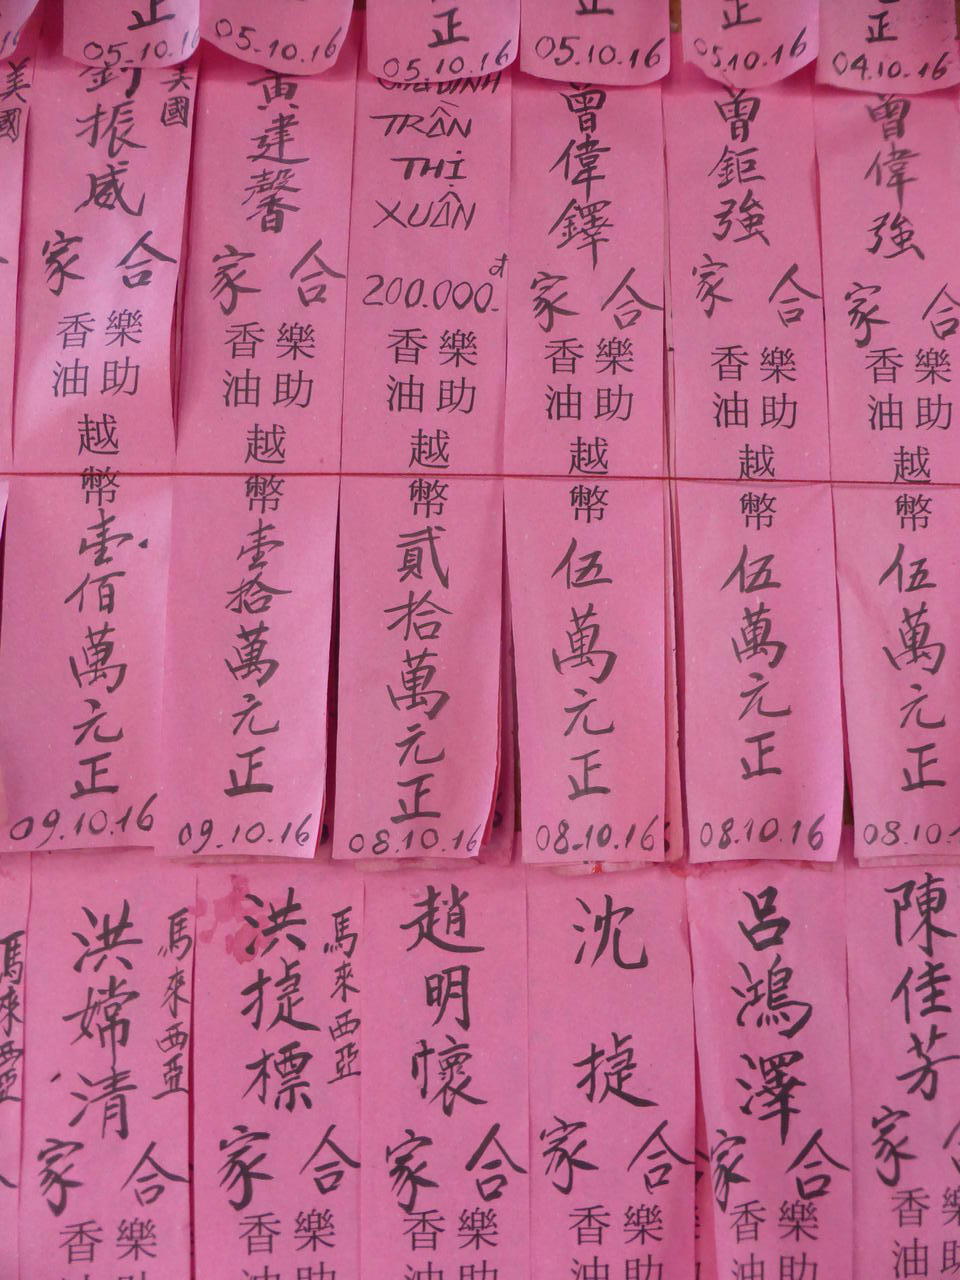 正
05.10.16
05.10.16
正
05.10.16
05.10.16
正
05.10.16
正
04.10.16
美國
美國
振威
合家
樂助
香油
越幣
壹佰萬元正
09.10.16
黃建馨
合家
樂助
香油
越幣
壹拾萬元正
09.10.16
GIA ĐÌNH
TRẦN
THỊ
XUÂN
200.000.đ
樂助
香油
越幣
貳拾萬元正
08.10.16
曾偉鐸
合家
樂助
香油
越幣
伍萬元正
08.10.16
曾鉅強
合家
樂助
香油
越幣
伍萬元正
08.10.16
曾偉強
合家
樂助
香油
越幣
伍萬元正
08.10.
馬來西亞
馬來西亞
洪嫦清
合家
樂
香
馬來西亞
洪㨗標
合家
樂助
香油
趙明懷
合家
樂助
香油
沈㨗
合家
樂助
香油
呂鴻澤
合家
樂助
香油
陳佳芳
合家
樂助
香油